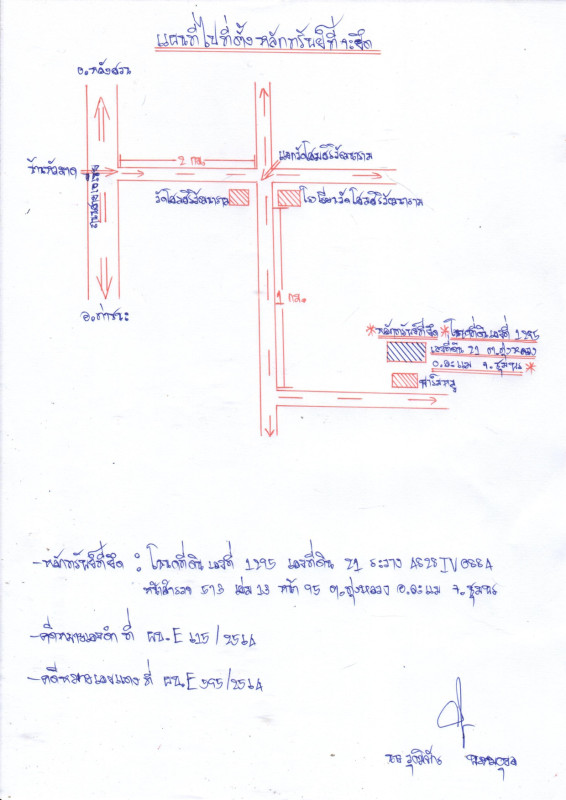 แผนที่ไปที่ตั้งหลักทรัพย์ที่จะยึด
อ.หลังสวน
2 กม.
แยกวัดโสมสิริวัฒนาราม
บ้านหัวลาด
ถนนสายเอเซีย
วัดโสมสิริวัฒนาราม
โรงเรียนวัดโสมสิริวัฒนาราม
อ.ท่าชนะ
1 กม.
*หลักทรัพย์ที่ยึด* โฉนดที่ดินเลขที่ 1395
เลขที่ดิน 21 ต.ทุ่งหลวง
อ.ละแม จ.ชุมพร *
- หลักทรัพย์ที่ยึด : โฉนดที่ดินเลขที่ 1395 เลขที่ดิน 21 ระวาง 4828 IV 0884
หน้าสำรวจ 573 เล่ม 13 หน้า 95 ต.ทุ่งหลวง อ.ละแม จ.ชุมพร
- คดีหมายเลขดำ ที่ ผบ.E 615/2564
- คดีหมายเลขแดง ที่ ผบ.E 595/2564